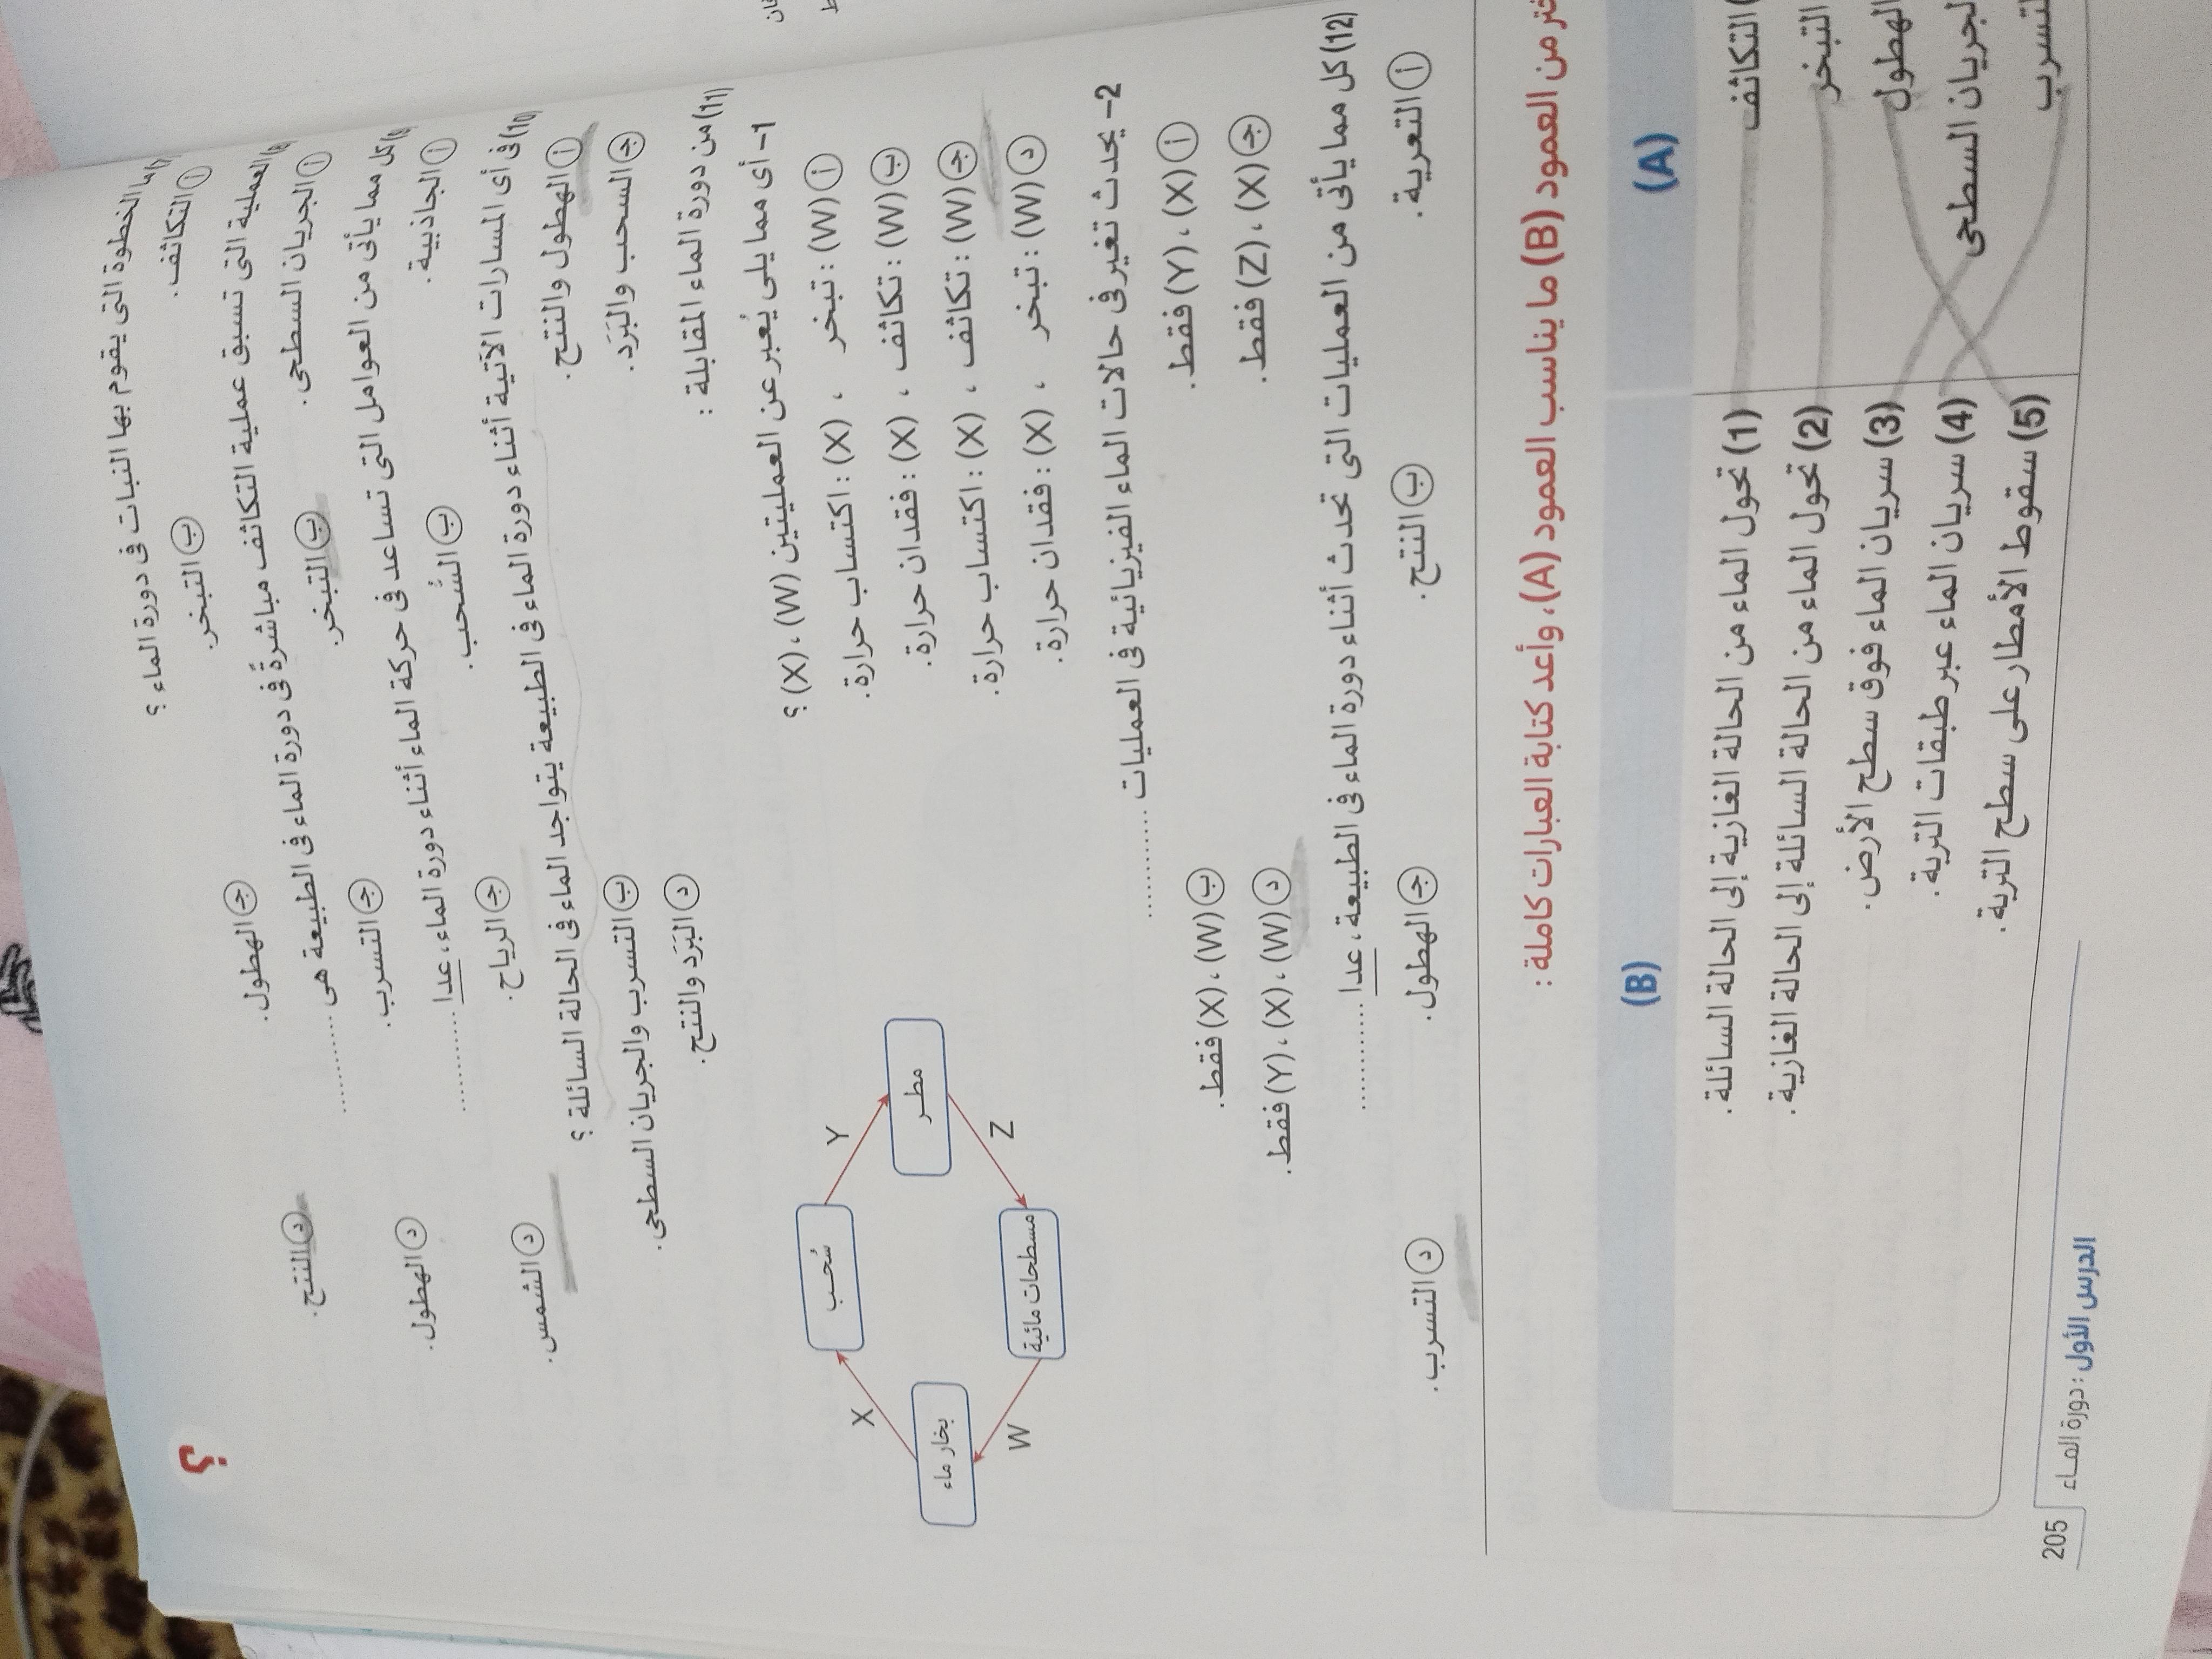 ما الخطوة التى يقوم بها النبات فى دورة الماء ؟
أ التكاثف.
ب التبخر.
ج الهطول.
د النتح.
العملية التى تسبق عملية التكاثف مباشرةً فى دورة الماء فى الطبيعة هى ............
أ الجريان السطحى.
ب التبخر.
ج التسرب.
د الهطول.
كل مما يأتى من العوامل التى تساعد فى حركة الماء أثناء دورة الماء، عدا ............
أ الجاذبية.
ب السُحب.
ج الرياح.
د الشمس.
(10) فى أى المسارات الآتية أثناء دورة الماء فى الطبيعة يتواجد الماء فى الحالة السائلة ؟
أ الهطول والنتح.
ب التسرب والجريان السطحى.
ج السحب والبَرَد.
د البَرَد والنتح.
(11) من دورة الماء المقابلة :
1- أى مما يلى يُعبر عن العمليتين (W)، (X) ؟
أ (W) : تبخر ، (X) : اكتساب حرارة.
ب (W) : تكاثف ، (X) : فقدان حرارة.
ج (W) : تكاثف ، (X) : اكتساب حرارة.
د (W) : تبخر ، (X) : فقدان حرارة.
سُحب
Y
مطر
Z
مسطحات مائية
W
بخار ماء
X
2- يحدث تغير فى حالات الماء الفيزيائية فى العمليات ............
أ (X)، (Y) فقط.
ب (W)، (X) فقط.
ج (X)، (Z) فقط.
د (W)، (X)، (Y) فقط.
(12) كل مما يأتى من العمليات التى تحدث أثناء دورة الماء فى الطبيعة، عدا ............
أ التعرية.
ب النتح.
ج الهطول.
د التسرب.
من العمود (B) ما يناسب العمود (A)، وأعد كتابة العبارات كاملة :
(A)
(B)
التكاثف
(1) تحول الماء من الحالة الغازية إلى الحالة السائلة.
التبخر
(2) تحول الماء من الحالة السائلة إلى الحالة الغازية.
الهطول
(3) سريان الماء فوق سطح الأرض.
الجريان السطحى
(4) سريان الماء عبر طبقات التربة.
التسرب
(5) سقوط الأمطار على سطح التربة.
205
الدرس الأول : دورة الماء